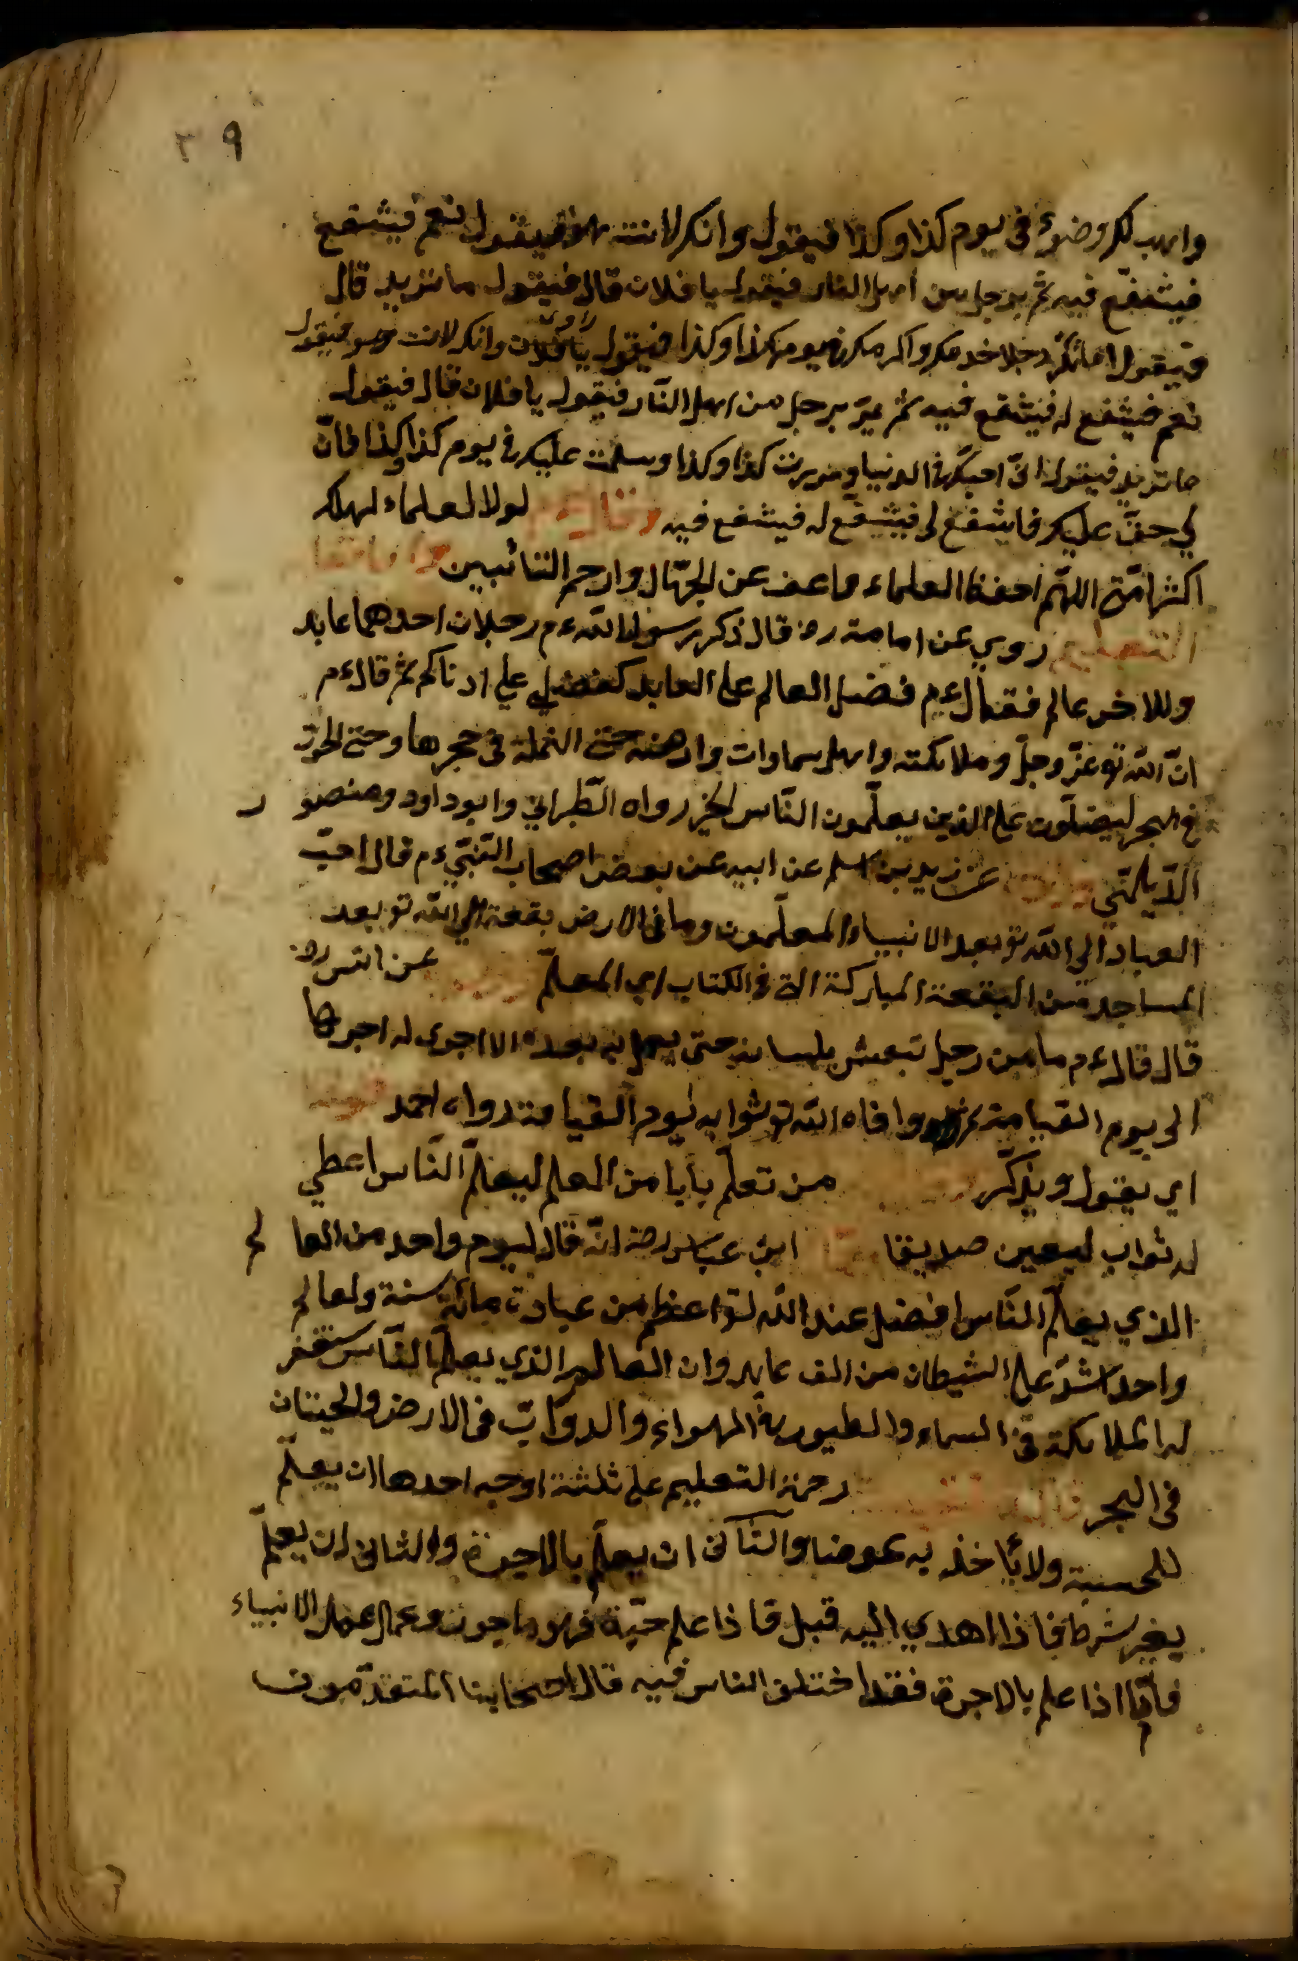 ٣٩
واهب لك وضوء في يوم كذا وكذا فيقول وانك لانت هو فيقول نعم فيشفع
فيشفع فيه ثم برجل من اهل النار فيقول يا فلان قال فيقول ما تريد قال
فيقول اما تذكر رجلا خدمك واكرمك في يوم كذا وكذا فيقول يا فلان وانك لانت هو فيقول
نعم فيشفع له فيشفع فيه ثم يمر برجل من اهل النار فيقول يا فلان قال فيقول
ما تريد فيقول اني احبك في الدنيا ومررت كذا وكذا وسلمت عليك في يوم كذا وكذا فان
لي حق عليك فاشفع لي فيشفع له فيشفع فيه وقال ءم لولا العلماء لهلك
اكثر امتي اللهم احفظ العلماء واعف عن الجهال وارحم التائبين
التعليم روي عن امامة رض قال ذكر رسول الله ءم رجلان احدهما عابد
وللاخر عالم فقال ءم فضل العالم على العابد كفضلي على ادناكم ثم قال ءم
انّ الله تع عزّ وجلّ وملائكته واهل سماوات وارضه حتى النملة في حجرها وحتى الحوت
في البحر ليصلّون على الذين يعلّمون النّاس الخير رواه الطّبراني وابو داود ومنصور
الدّيلمي عن زيد بن اسلم عن ابيه عن بعض اصحاب النّبيّ ءم قال احبّ
العباد الى الله تع بعد الانبياء المعلّمون وما في الارض بقعة الى الله تع بعد
المساجد من البقعة المباركة التي في الكتاب اي المعلّم عن انس رض
قال قال ءم ما من رجل تبعش بلسانه حتى يعمل به بعده الا اجرى له اجرها
الى يوم القيامة ثم وافاه الله تع ثوابه ليوم القيامة رواه احمد قوله
اي يقول ويذكّر من تعلّم بابا من العلم ليعلّم النّاس اعطي
له ثواب سبعين صديقا ابن عباس رض انّه قال ليوم واحد من العالم
الذي يعلّم النّاس افضل عند الله تع اعظم من عبادة مائة سنة ولعالم
واحد اشدّ على الشيطان من الف عابد وان العالم الذي يعلّم النّاس يستغفر
له الملائكة في السماء والطيور في الهواء والدوابّ في الارض والحيتان
في البحر قال الفقيه رحمة التعليم على ثلثة اوجه احدها ان يعلّم
للحسبة ولا يأخذ به عوضا والثاني ان يعلّم بالاجرة والثاني ان يعلّم
بغير شرط فاذا اهدي اليه قبل فاذا علم حبّة فهو ماجور وعمل عمل الانبياء
فامّا اذا علم بالاجرة فقد اختلف الناس فيه قال اصحابنا المتقدّمون